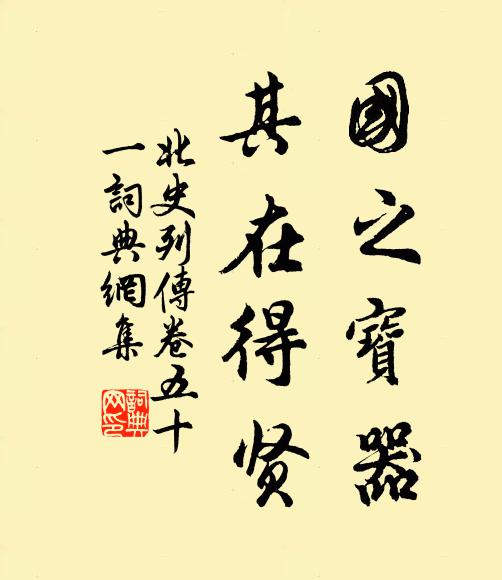 國之寶器
其在得贤
北史列傳卷五十
一詞典網集
詞典
网印